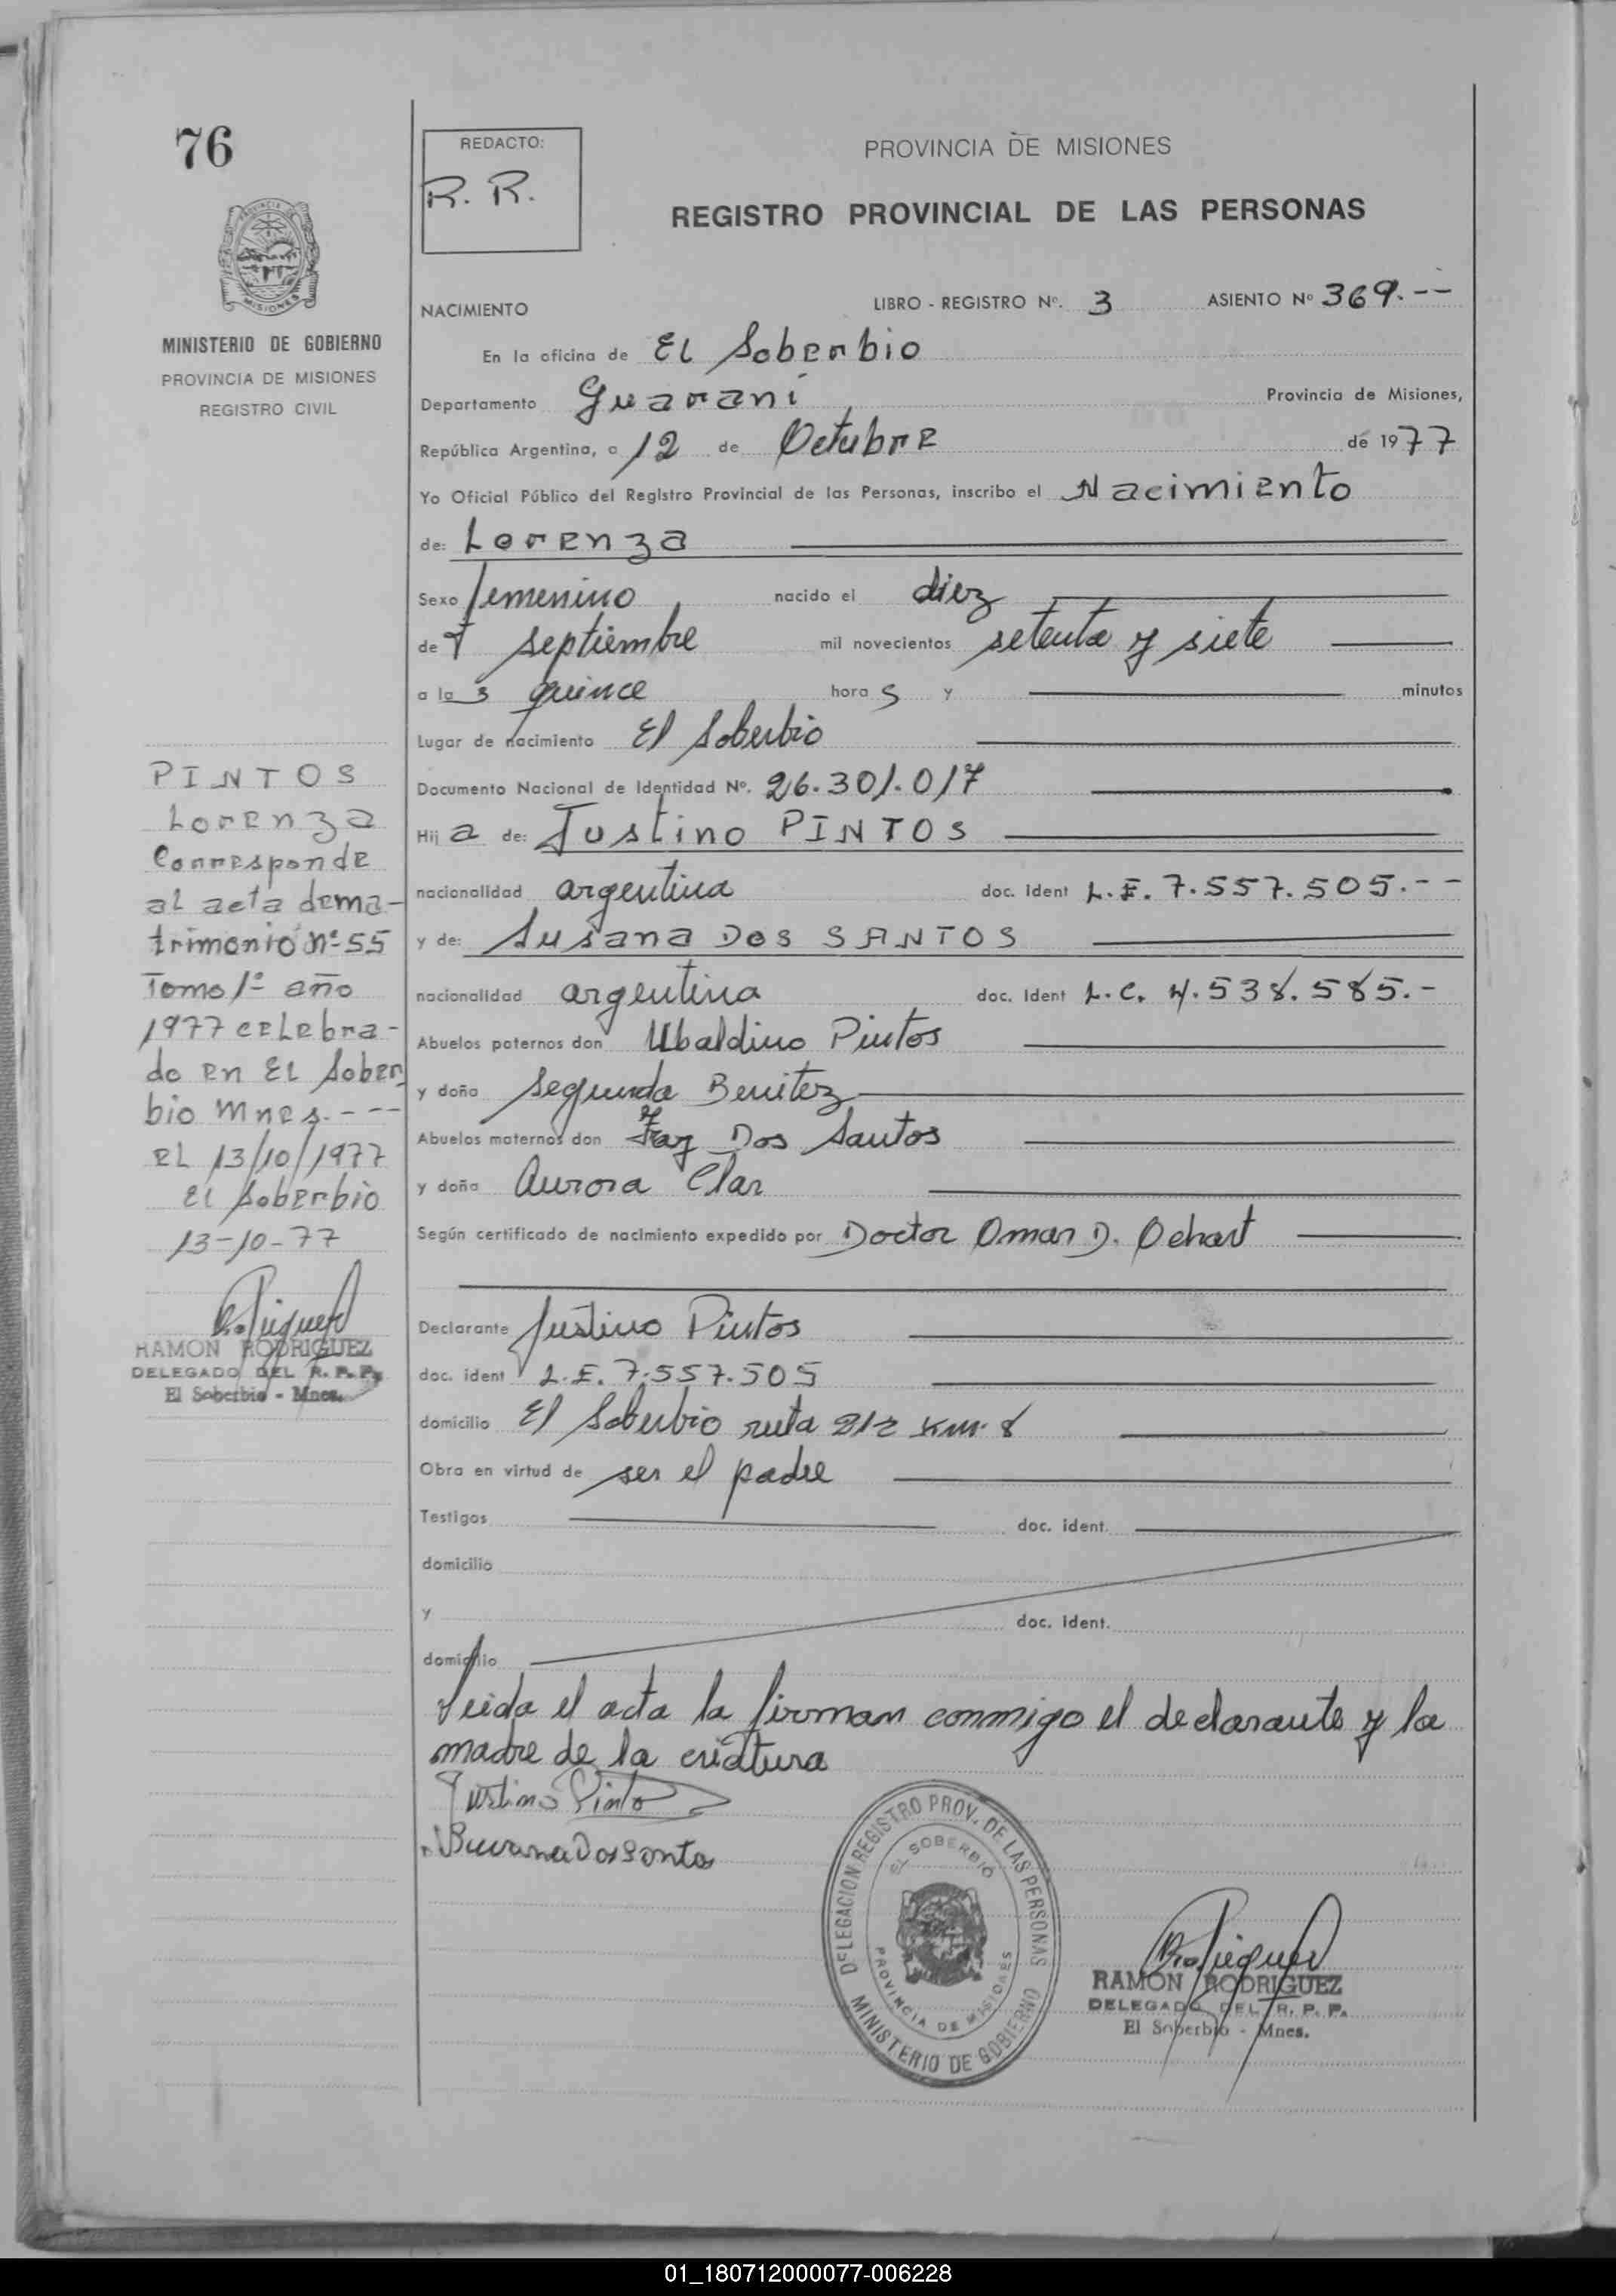 76
REDACTO:
R. R.
PROVINCIA DE MISIONES
REGISTRO PROVINCIAL DE LAS PERSONAS
MINISTERIO DE GOBIERNO
PROVINCIA DE MISIONES
REGISTRO CIVIL
NACIMIENTO LIBRO - REGISTRO Nº. 3 ASIENTO Nº 369.--
En la oficina de El Soberbio
Departamento Guaraní Provincia de Misiones,
República Argentina, a 12 de Octubre de 1977
Yo Oficial Público del Registro Provincial de las Personas, inscribo el Nacimiento
de: Lorenza
Sexo femenino nacido el diez
de septiembre mil novecientos setenta y siete
a las quince horas y minutos
Lugar de nacimiento El Soberbio
Documento Nacional de Identidad Nº. 26.301.017
Hija de: Justino PINTOS
nacionalidad argentina doc. ident L.E. 7.557.505.--
y de: Susana Dos SANTOS
nacionalidad argentina doc. ident L.C. 4.538.585.-
Abuelos paternos don Ubaldino Pintos
y doña Segunda Benitez
Abuelos maternos don Dos Santos
y doña Aurora Clar
Según certificado de nacimiento expedido por Doctor Omar D. Ochart
Declarante Justino Pintos
doc. ident L.E. 7.557.505
domicilio El Soberbio ruta 212 Km. 8
Obra en virtud de ser el padre
Testigos doc. ident.
domicilio
y doc. ident.
domicilio
Leida el acta la firman conmigo el declarante y la
madre de la criatura
Justino Pinto
Susana Dos Santos
PINTOS
Lorenza
Corresponde
al acta de ma-
trimonio nº 55
Tomo 1º año
1977 celebra-
do en El Sober
bio Mnes.---
el 13/10/1977
El Soberbio
13-10-77
RAMON RODRIGUEZ
DELEGADO DEL R. P. P.
El Soberbio - Mnes.
DELEGACION REGISTRO PROV. DE LAS PERSONAS
EL SOBERBIO
PROVINCIA DE MISIONES
MINISTERIO DE GOBIERNO
RAMON RODRIGUEZ
DELEGADO DEL R. P. P.
El Soberbio - Mnes.
01_180712000077-006228